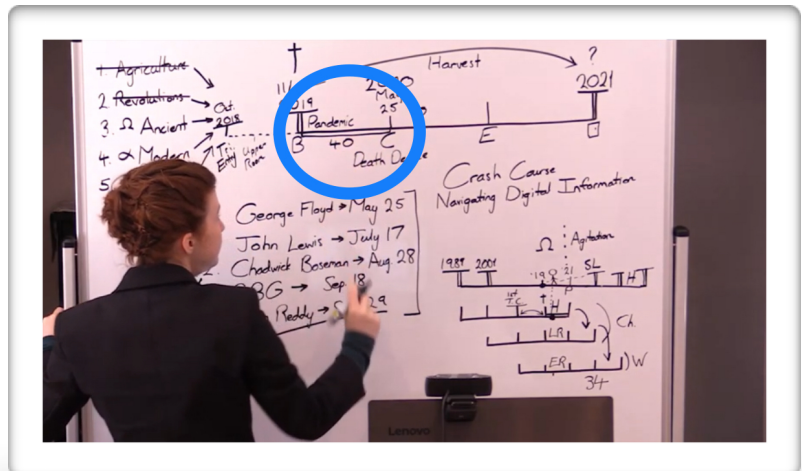 1. Agriculture
2 Revolutions
3. Ω Ancient
4. α Modern
5
Oct.
2018
Tri
Entry Upper
Room
†
11/
2019
Pandemic
40
B
May
25
C
Death
Harvest
E
?
2021
George Floyd → May 25
John Lewis → July 17
Chadwick Boseman → Aug. 28
BG → Sep. 18
Reddy → 29
Crash Course
Navigating Digital Information
Ω Agitation
1989 2001 19 21 SL H
P
H
LR
ER
Ch.
W
34
Lenovo